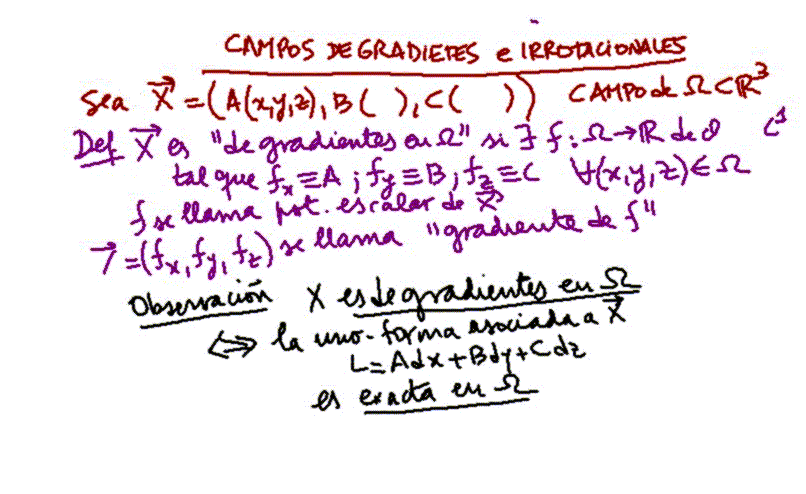 CAMPOS DE GRADIETES e IRROTACIONALES
Sea X⃗ = (A(x,y,z), B( ), C( )) CAMPO de Ω⊂ℝ³
Def X⃗ es "de gradientes en Ω" si ∃ f: Ω→ℝ de cl C¹
tal que fₓ≡A ; f_y≡B ; f_z≡C ∀(x,y,z)∈Ω
f se llama pot. escalar de X⃗
=(fₓ, f_y, f_z) se llama "gradiente de f"
Observación X es de gradientes en Ω
⟺ la uno-forma asociada a X⃗
L=Adx+Bdy+Cdz
es exacta en Ω